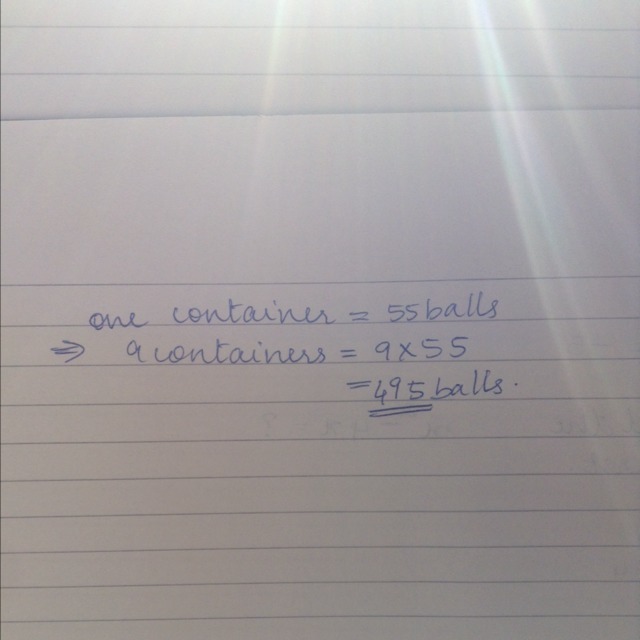 one container = 55 balls
⇒ 9 containers = 9 × 55
= 495 balls.